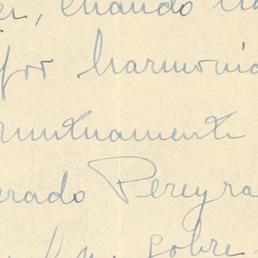 cuando
por harmonia
mutuamente
erado Pereyra
sobre